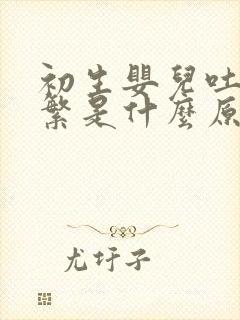 初生嬰兒吐
繁是什麼原
尤圩子